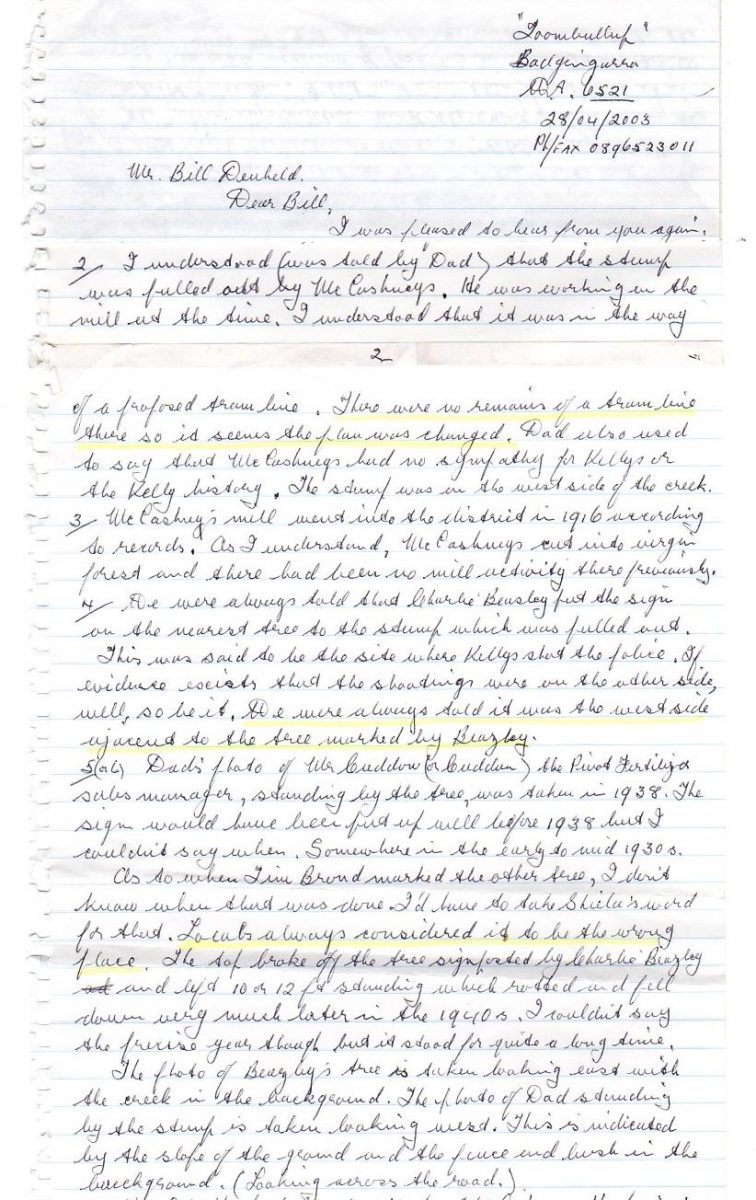 "Toombullup"
Badgingarra
W.A. 6521
28/04/2003
Ph/FAX 0896523011
Mr. Bill Denheld.
Dear Bill,
I was pleased to hear from you again.
2/ I understood (was told by "Dad) that the stump
was pulled out by McCashneys. He was working in the
mill at the time. I understood that it was in the way
2
of a proposed tram line. There were no remains of a tram line
there so it seems the plan was changed. Dad also used
to say that McCashneys had no sympathy for Kellys or
the Kelly history. The stump was on the west side of the creek.
3/ McCashney's mill went into the district in 1916 according
to records. As I understand, McCashneys cut into virgin
forest and there had been no mill activity there previously.
4/ We were always told that Charlie Beasley put the sign
on the nearest tree to the stump which was pulled out.
This was said to be the site where Kellys shot the police. If
evidence excists that the shootings were on the other side,
well, so be it. We were always told it was the west side
ajacent to the tree marked by Beazley.
5(or6) Dad's photo of Mr Cuddow (or Cuddon) the Pivot Fertilizer
sales manager, standing by the tree, was taken in 1938. The
sign would have been put up well before 1938 but I
couldn't say when. Somewhere in the early to mid 1930s.
As to when Tim Brond marked the other tree, I don't
know when that was done. I'd have to take Shiela's word
for that. Locals always considered it to be the wrong
place. The top broke off the tree signposted by Charlie Beazley
and left 10 or 12 ft standing which rotted and fell
down very much later in the 1940s. I couldn't say
the precise year though but it stood for quite a long time.
The photo of Beazley's tree is taken looking east with
the creek in the background. The photo of Dad standing
by the stump is taken looking west. This is indicated
by the slope of the ground and the fence and bush in the
background. (Looking across the road.)